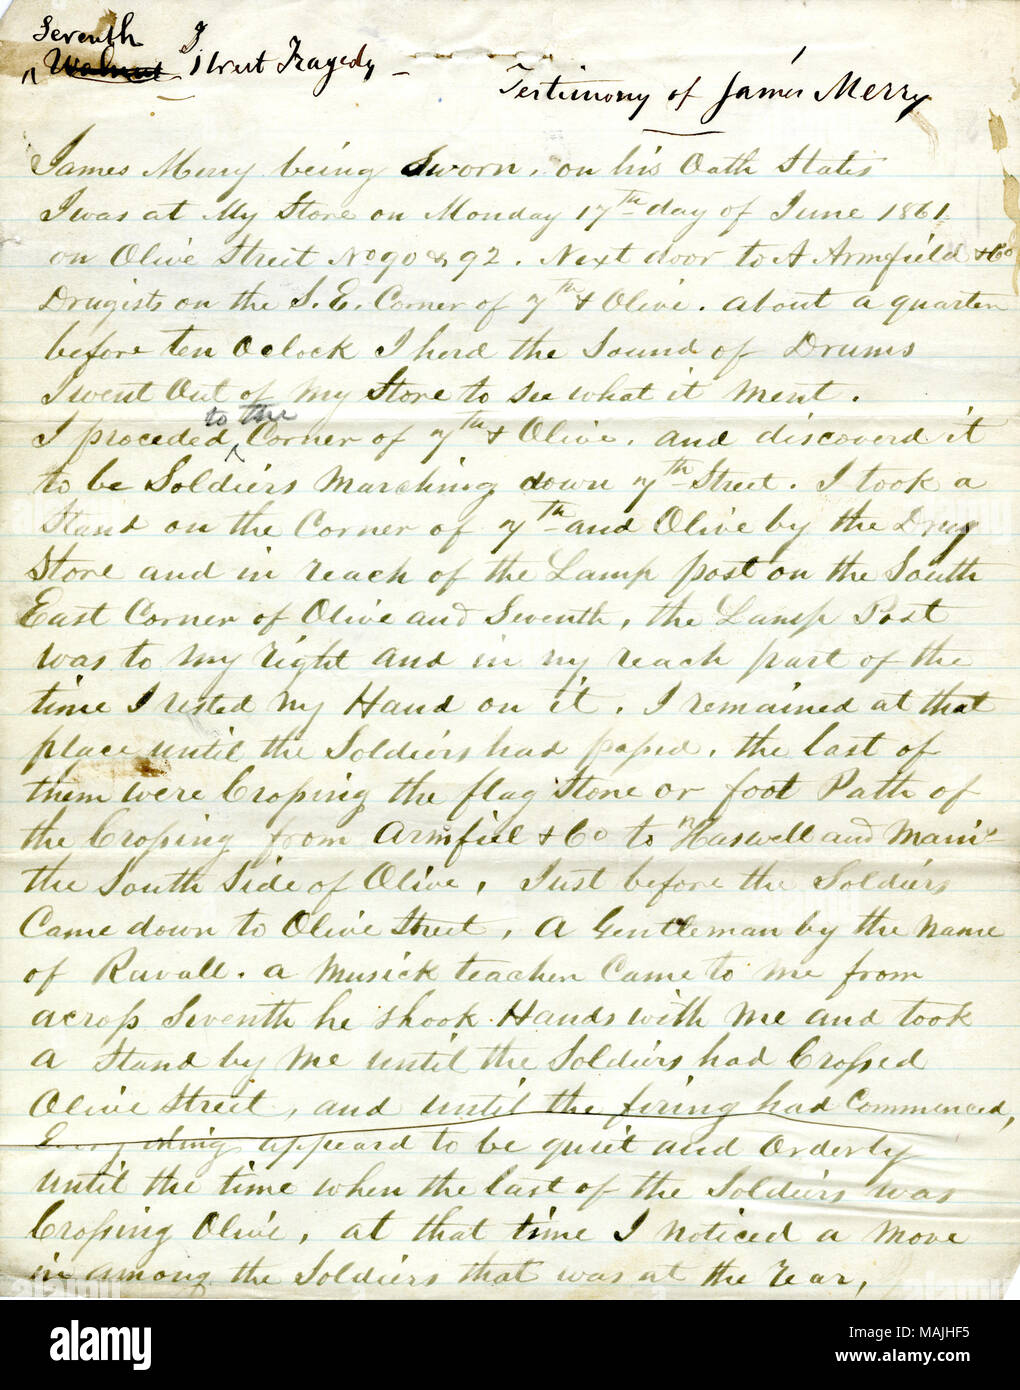 Seventh
^ Walnut Street Tragedy -
Testimony of James Merry
James Merry being Sworn, on his Oath States
I was at My Store on Monday 17th day of June 1861.
on Olive Street No 90 & 92. Next door to A Armfield & Co
Drugists on the S.E. Corner of 7th & Olive. about a quarter
before ten Oclock I herd the Sound of Drums
I went Out of my Store to see what it ment.
to the
I proceded ^ Corner of 7th & Olive. and discoverd it
to be Soldiers Marching down 7th Street. I took a
Stand on the Corner of 7th and Olive by the Drug
Store and in reach of the Lamp post on the South
East Corner of Olive and Seventh, the Lamp Post
was to my right and in my reach part of the
time I rested my Hand on it. I remained at that
place until the Soldiers had passed. the last of
them were Crossing the flag Stone or foot Path of
the Crossing from Armfiel & Co to Haswell and
the South Side of Olive, Just before the Soldiers
Came down to Olive Street, A Gentleman by the Name
of Ravall. a Musick teacher Came to me from
across Seventh he shook Hands with me and took
a Stand by me until the Soldiers had Crossed
Olive Street, and until the firing had Commenced,
Every thing appeard to be quiet and Orderly
until the time when the last of the Soldiers was
Crossing Olive, at that time I noticed a move
in among the Soldiers that was at the rear,
alamy
Image ID: MAJHF5
www.alamy.com